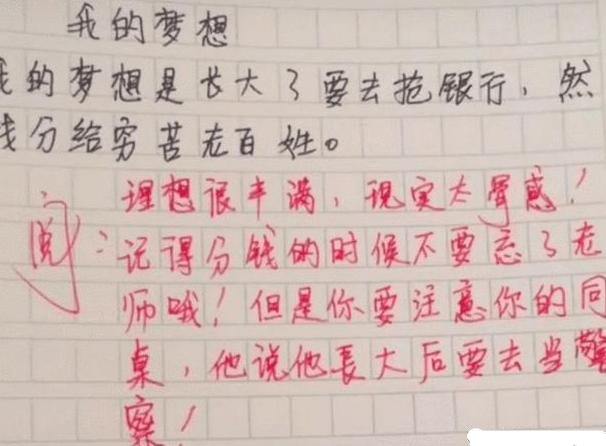 我的梦想
我的梦想是长大了要去抢银行，然
钱分给穷苦老百姓。
理想很丰满，现实太骨感！
阅：记得分钱的时候不要忘了老
师哦！但是你要注意你的同
桌，他说他長大后要去当警
察！